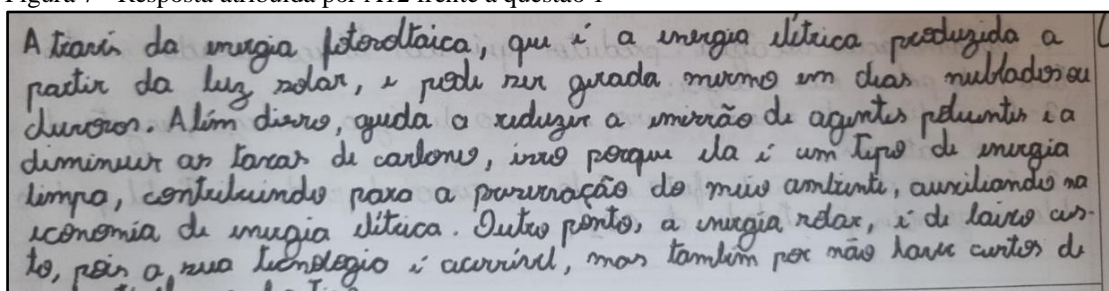 A traves da energia fotovoltaica, que é a energia elétrica produzida a
partir da luz solar, e pode ser gerada mesmo em dias nublados ou
chuvosos. Além disso, ajuda a reduzir a emissão de agentes poluentes e a
diminuir as taxas de carbono, isso porque ela é um tipo de energia
limpa, contribuindo para a preservação do meio ambiente, auxiliando na
economia de energia elétrica. Outro ponto, a energia solar, é de baixo cus-
to, pois a sua tecnologia é acessível, mas também por não haver custos de